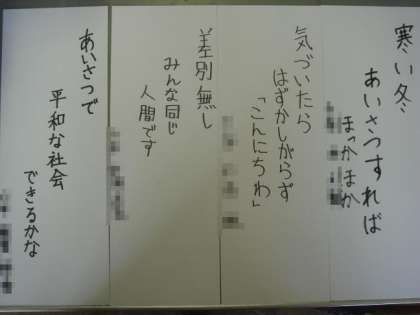 寒い冬
あいさつすれば
まっかまか
気づいたら
はずかしがらず
「こんにちわ」
差別無し
みんな同じ
人間です
あいさつで
平和な社会
できるかな